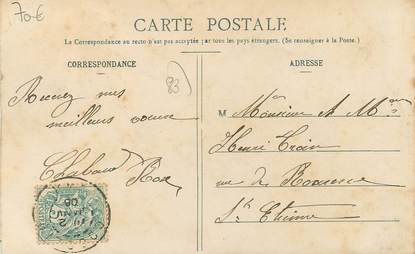 70 €
CARTE POSTALE
La Correspondance au recto n'est pas acceptée par tous les pays étrangers. (Se renseigner à la Poste.)
CORRESPONDANCE
ADRESSE
83
Recevez mes
meilleurs voeux
Chabaud
M Monsieur et Mme
Henri
rue de
St Etienne